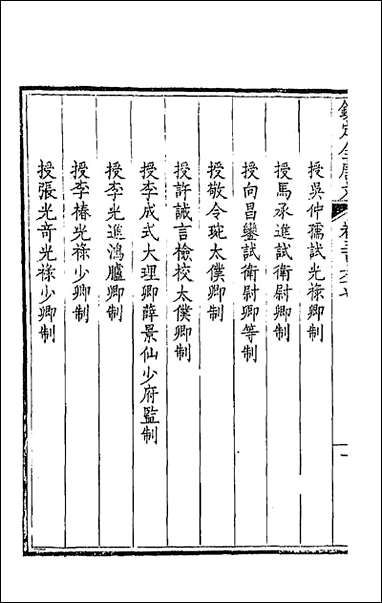 欽定全唐文
卷三百六十七
一
授吳仲孺試光祿卿制
授馬承進試衛尉卿制
授向昌鑾試衛尉卿等制
授敬令琬太僕卿制
授許誠言檢校太僕卿制
授李成式大理卿薛景仙少府監制
授李光進鴻臚卿制
授李椿光祿少卿制
授張光奇光祿少卿制